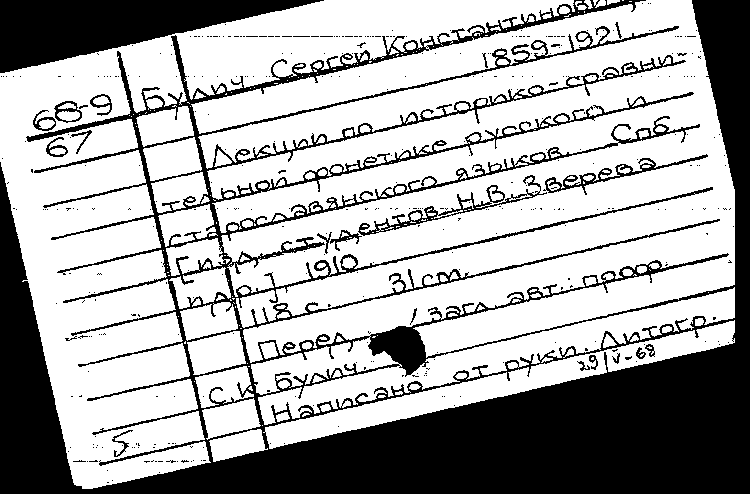 68-9
67
Булич, Сергей Константинович,
1859-1921.
Лекции по историко-сравни-
тельной фонетике русского и
старославянского языков. Спб,
[изд. студентов Н.В. Зверева
и др.], 1910.
118 с. 31 см.
Перед / загл. авт.: проф.
С.К. Булич.
Написано от руки. Литогр.
29/V-68
5